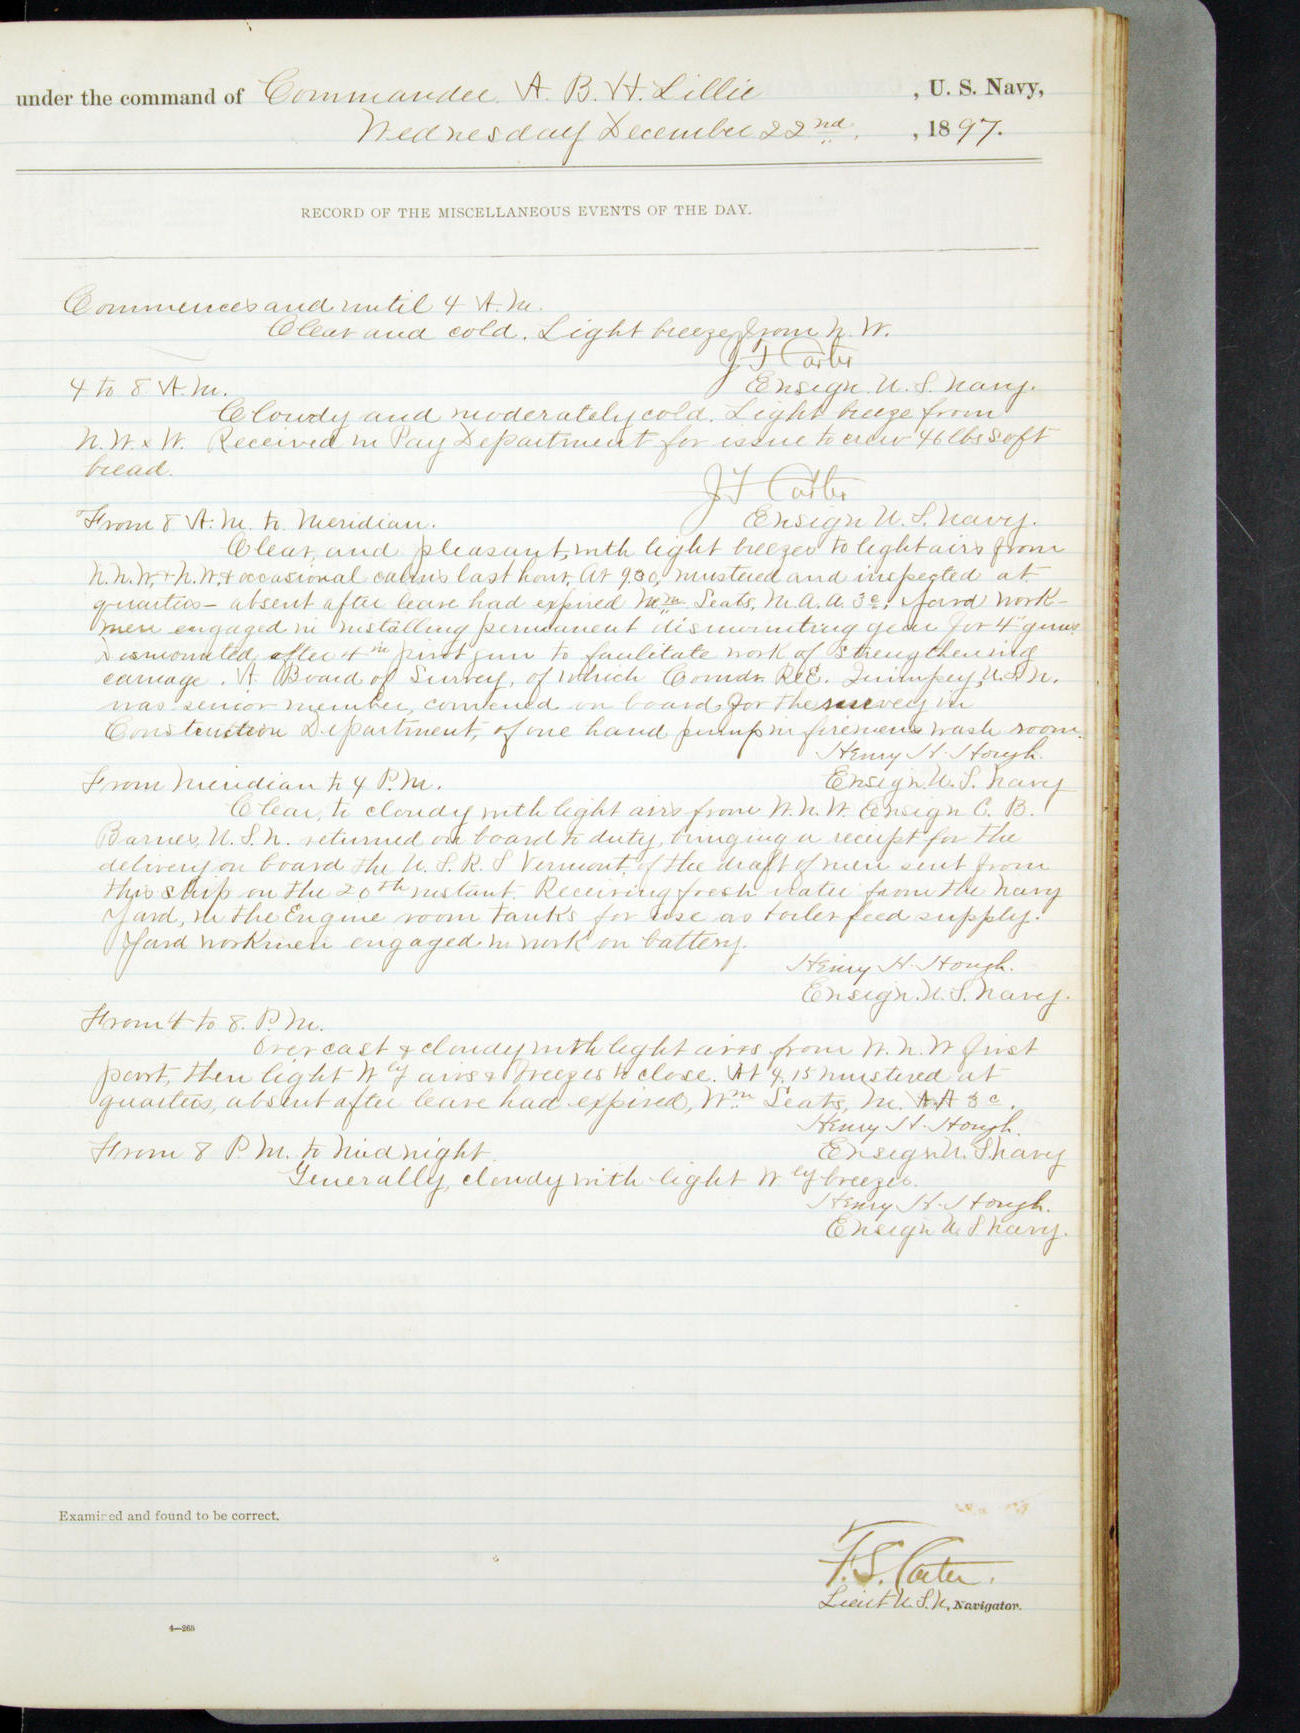 under the command of Commander A. B. H. Lillie , U. S. Navy,
Wednesday December 22nd. , 1897.
RECORD OF THE MISCELLANEOUS EVENTS OF THE DAY.
Commences and until 4 A.M.
Clear and cold. Light breeze from N.W.
J F Carter
4 to 8 A.M. Ensign U.S. Navy.
Cloudy and moderately cold. Light breeze from
N.W. x W. Received in Pay Department for issue to crew 46 lbs soft
bread.
J F Carter
From 8 A.M. to Meridian. Ensign U.S. Navy.
Clear, and pleasant, with light breezes to light airs from
N.N.W. + N.W. + occasional calms last hour. At 9.30, mustered and inspected at
quarters – absent after leave had expired Wm Seats, M.A.A. 3c. Yard work-
men engaged in installing permanent dismounting gear for 4" guns
Dismounted after 4 in pivot gun to faulitate work of strengthening
carriage. A Board of Survey, of which Comdr. R.E. Impey, U.S.N.
was senior member, convened on board for the survey in
Construction Department, of one hand pump in firemens wash room.
Henry H. Hough.
From Meridian to 4 P.M. Ensign U.S. Navy
Clear, to cloudy with light airs from W.N.W. Ensign C. B.
Barnes, U.S.N. returned on board to duty, bringing a receipt for the
delivery on board the U.S.R.S Vermont, of the draft of men sent from
this ship on the 20th instant. Receiving fresh water from the Navy
Yard, in the Engine room tanks for use as boiler feed supply.
Yard workmen engaged in work on battery.
Henry H. Hough.
Ensign. U.S. Navy.
From 4 to 8. P.M.
Overcast & cloudy with light airs from W.N.W first
part, then light Wly airs & breezes to close. At 4.15 mustered at
quarters, absent after leave had expired, Wm Seats, M.A.A 3c.
Henry H. Hough.
From 8 P.M. to Midnight. Ensign U.S Navy
Generally, cloudy with light Wly breezes.
Henry H. Hough.
Ensign U.S Navy.
Examined and found to be correct.
F. S. Carter.
Lieut U.S.N., Navigator.
4—265